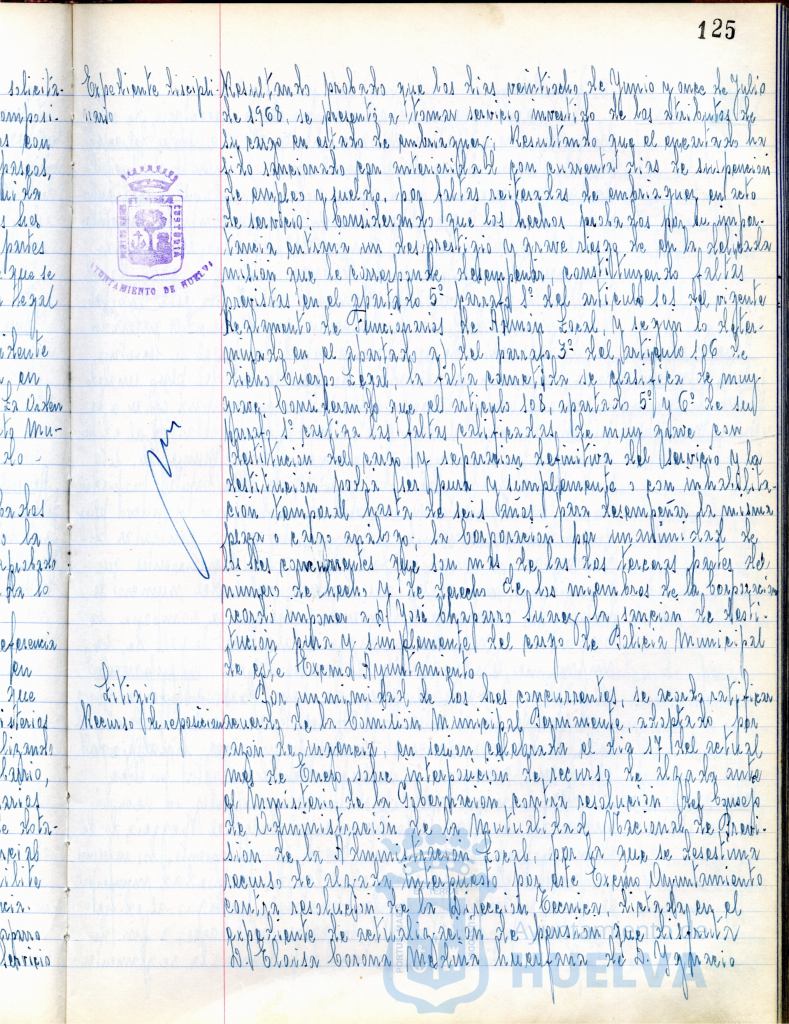 125
Expediente discipli-
nario
Resultando probado que los días veintiocho de Junio y once de Julio
de 1968, se presentó a tomar servicio investido de los atributos de
su cargo en estado de embriaguez; Resultando que el encartado ha
sido sancionado con anterioridad con cuarenta días de suspensión
de empleo y sueldo, por faltas reiteradas de embriaguez en acto
de servicio; Considerando que los hechos probados por su impor-
tancia entraña un desprestigio y grave riesgo de en la delicada
misión que le corresponde desempeñar, constituyendo faltas
previstas en el apartado 5º parrafo 1º del artículo 105 del vigente
Reglamento de Funcionarios de Admón Local, y segun lo deter-
minado en el apartado a) del parrafo 3º del artículo 106 de
dicho Cuerpo Legal, la falta cometida se clasifica de muy
grave; Considerando que el artículo 108, apartado 5º y 6º de su
parrafo 1º castiga las faltas calificadas de muy grave con
destitución del cargo y separación definitiva del servicio y la
destitución podrá ser pura y simplemente o con inhabilita-
ción temporal hasta de seis años para desempeñar la misma
plaza o cargo análogo; la Corporación por unanimidad de
los Sres concurrentes que son más de las dos terceras partes del
numero de hecho y de derecho de los miembros de la Corporación
acordó imponer a D. José Chaparro Suarez la sanción de desti-
tución pura y simplemente del cargo de Policía Municipal
de este Excmo Ayuntamiento
Litigio
Recurso de reposición
Por unanimidad de los Sres concurrentes, se acordó ratificar
acuerdo de la Comisión Municipal Permanente, adoptado por
razon de urgencia, en sesión celebrada el dia 17 del actual
mes de Enero, sobre interposición de recurso de alzada ante
el Ministerio de la Gobernación contra resolución del Consejo
de Administración de la Mutualidad Nacional de Previ-
sión de la Administración Local, por la que se desestima
recurso de alzada interpuesto por este Excmo Ayuntamiento
contra resolución de la Dirección Tecnica, dictada en el
expediente de actualización de pensión que disfruta
Dª Eloisa Corona Medina huerfana de D. Ygnacio
AYUNTAMIENTO DE HUELVA
Ayuntamiento de
HUELVA